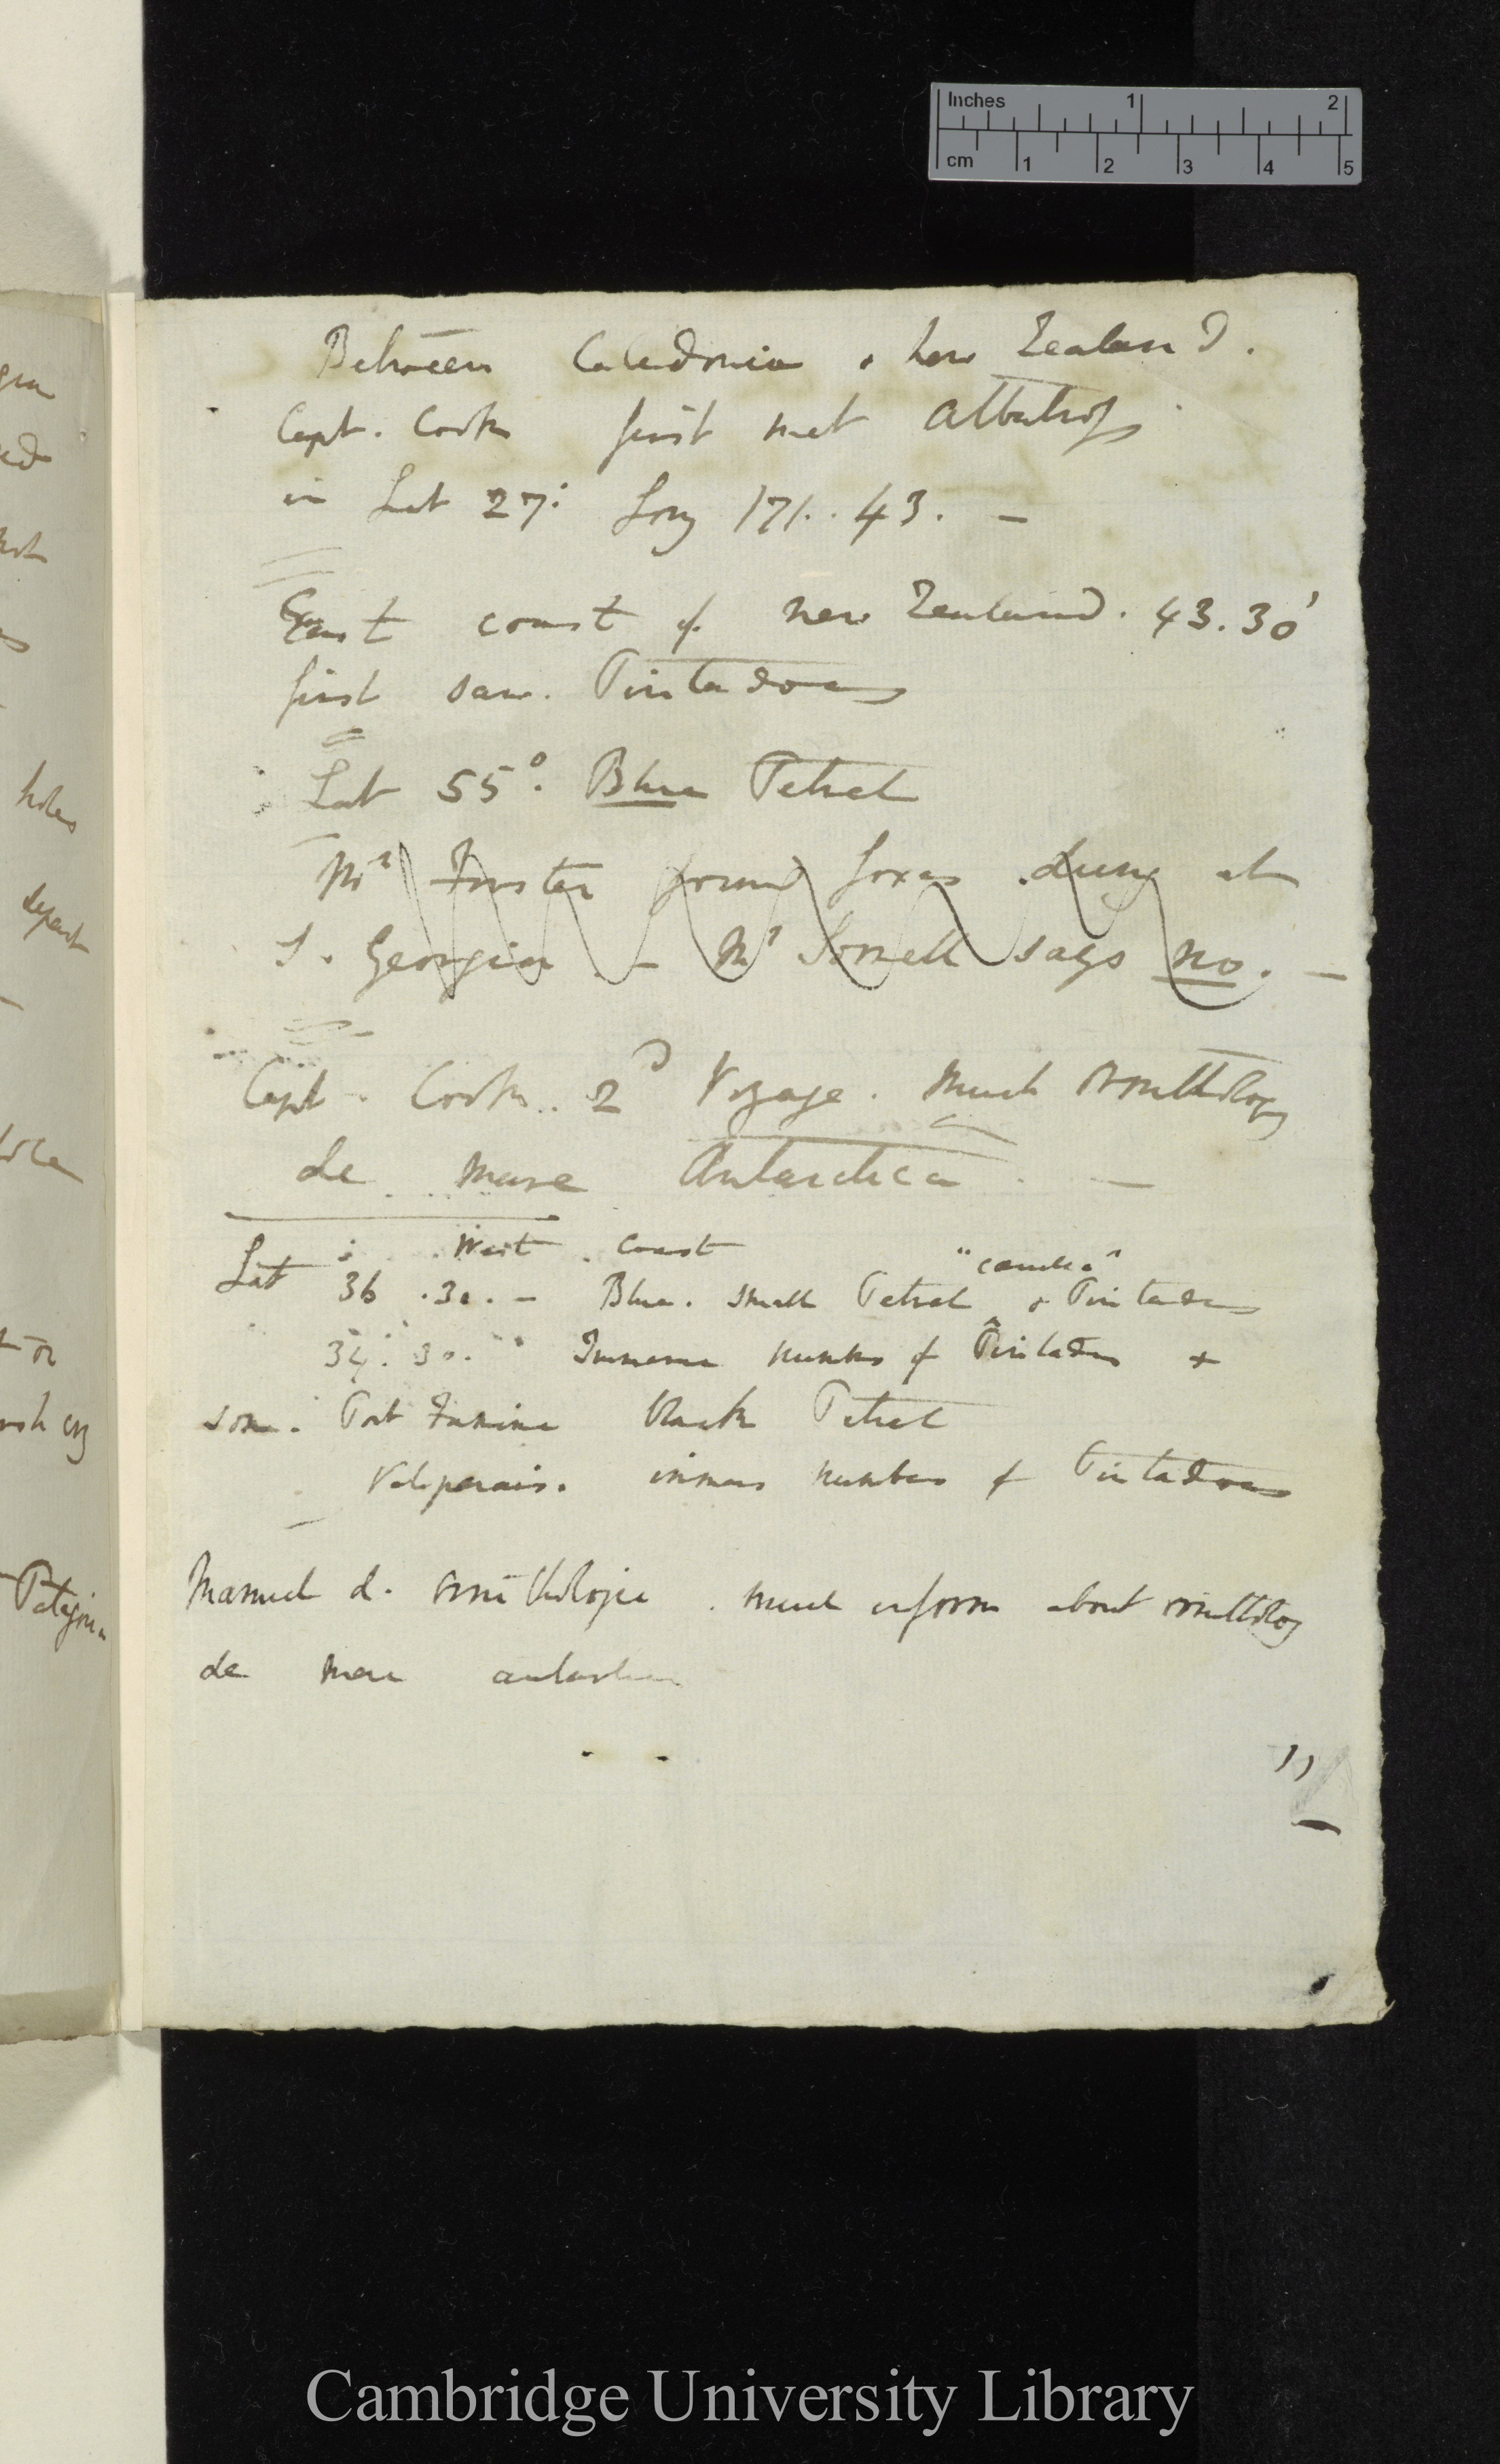 Inches 1 2
cm 1 2 3 4 5
Between Caledonia & New Zealand.
Capt. Cook first met Albatross
in Lat 27: Long 171..43. —
East coast of New Zealand. 43.30'
first saw. Pintadoes
Lat 55°. Blue Petrel
Mr Forster found foxes dung at
S. Georgia. — Mr Sorrell says no. —
Capt. Cook. 2d Voyage. Much Ornithology
de mare Antarctica. —
West Coast
Lat 36.30. — Blue. small Petrel & Pintados
34.30. Immense numbers of Pintados &
some. Port Famine black Petrel
Valparais. immens numbers of Pintadoes
Manuel d. Ornithologie. much inform about ornitholog
de mare antarctica
holes
depart
Patagonia
Cambridge University Library